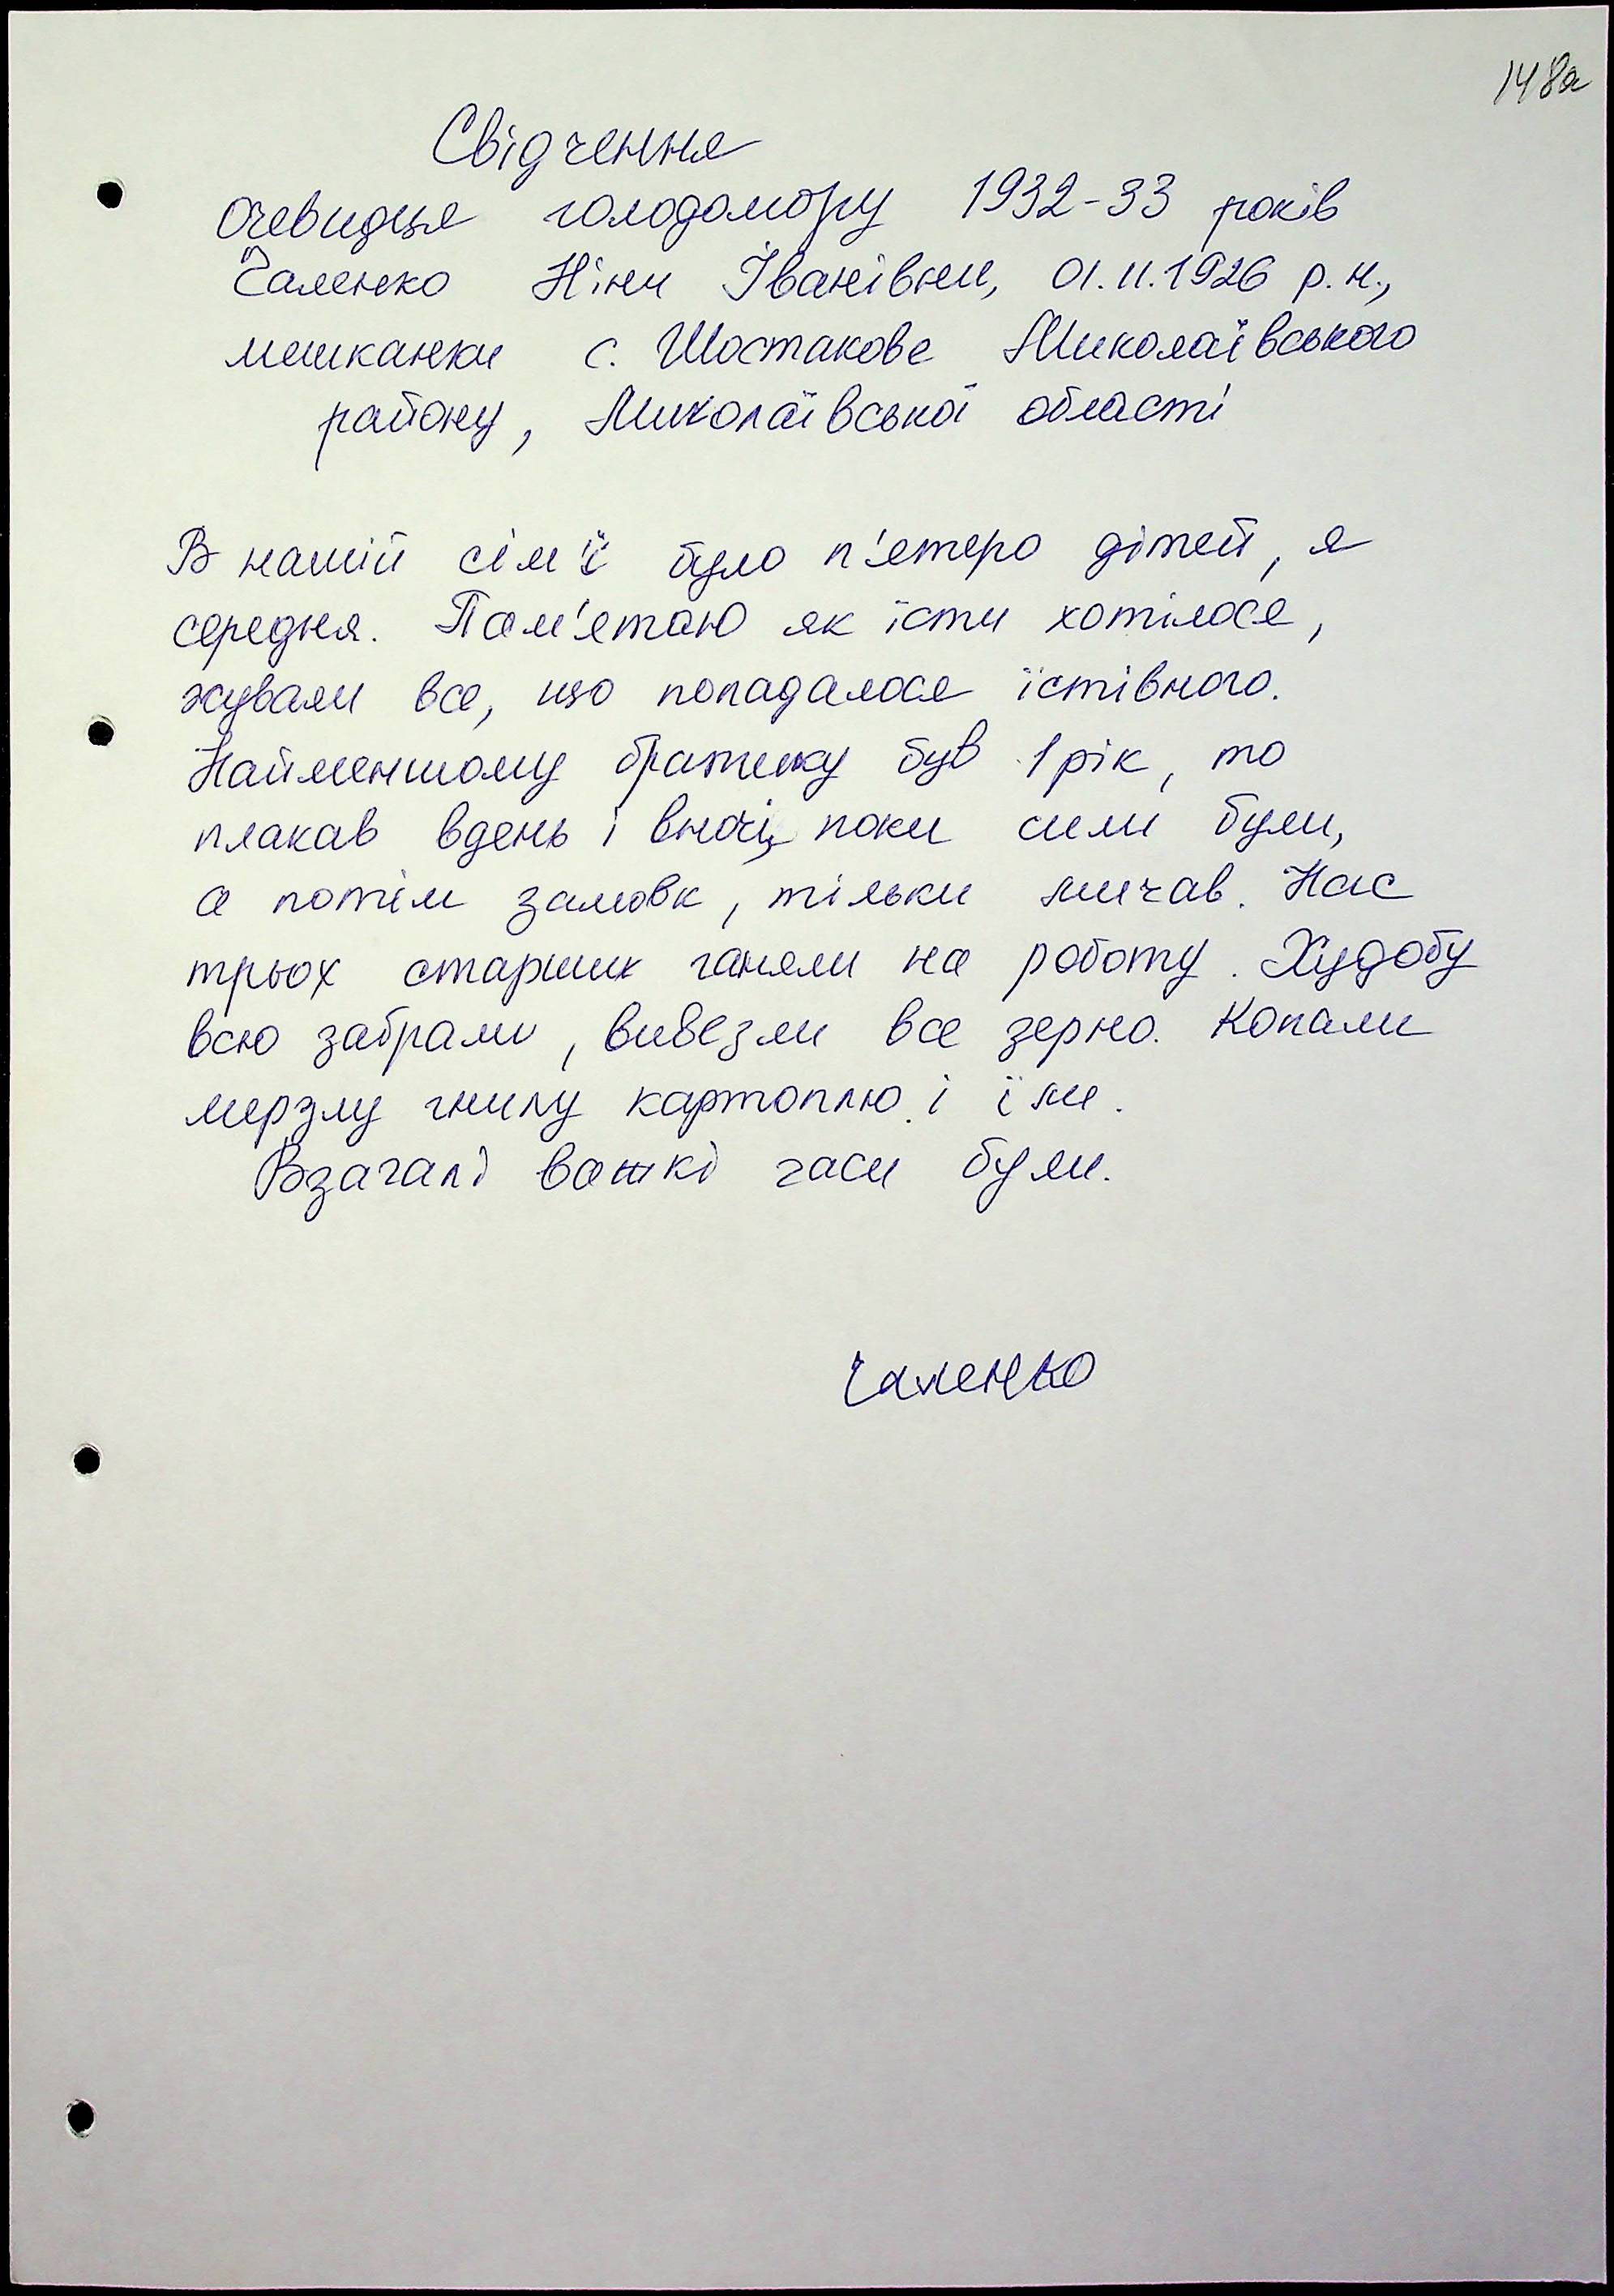 148а
Свідчення
очевидця голодомору 1932-33 років
Чаленко Ніни Іванівни, 01.11.1926 р.н.,
мешканки с. Шостакове Миколаївського
району, Миколаївської області
В нашій сім'ї було п'ятеро дітей, я
середня. Пам'ятаю як їсти хотілося,
жували все, що попадалося їстівного.
Найменшому братику був 1 рік, то
плакав вдень і вночі, поки сили були,
а потім замовк, тільки мичав. Нас
трьох старших ганяли на роботу. Худобу
всю забрали, вивезли все зерно. Копали
мерзлу гнилу картоплю і їли.
Взагалі важкі часи були.
Чаленко